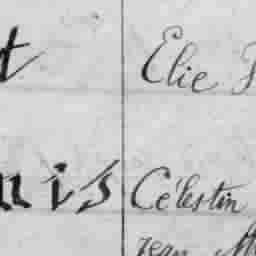 t Elie
uis Célestin
Jean